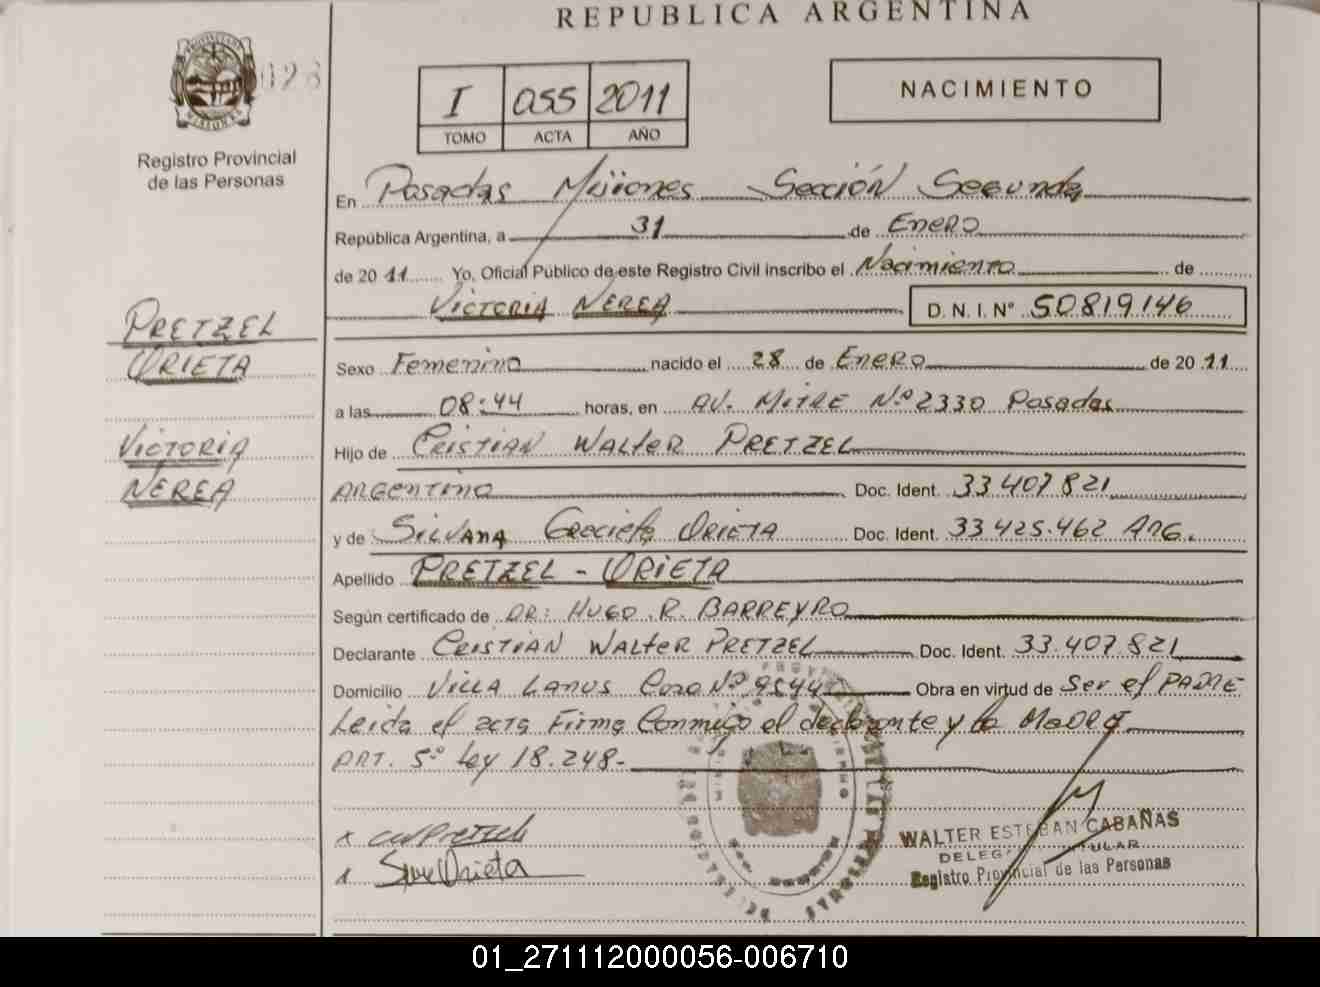 REPUBLICA ARGENTINA
Registro Provincial
de las Personas
I 055 2011
TOMO ACTA AÑO
NACIMIENTO
En Posadas Misiones Sección Segunda
República Argentina, a 31 de Enero
de 2011 Yo. Oficial Público de este Registro Civil inscribo el Nacimiento de
VICTORIA NEREA D. N. I. Nº 50819146
PRETZEL
ORIETA
VICTORIA
NEREA
Sexo Femenino nacido el 28 de Enero de 2011
a las 08:44 horas, en AV. MITRE Nº 2330 Posadas
Hijo de CRISTIAN WALTER PRETZEL
ARGENTINO Doc. Ident. 33407821
y de SILVANA Graciela ORIETA Doc. Ident. 33425.462 ARG.
Apellido PRETZEL - ORIETA
Según certificado de DR: HUGO R. BARREYRO
Declarante CRISTIAN WALTER PRETZEL Doc. Ident. 33.407821
Domicilio VILLA LANUS Casa Nº 9544 Obra en virtud de Ser el PADRE
Leida el acta Firma Conmigo el declarante y la MADRE
ART. 5º Ley 18.248-
WALTER ESTEBAN CABAÑAS
DELEGADO TITULAR
Registro Provincial de las Personas
01_271112000056-006710